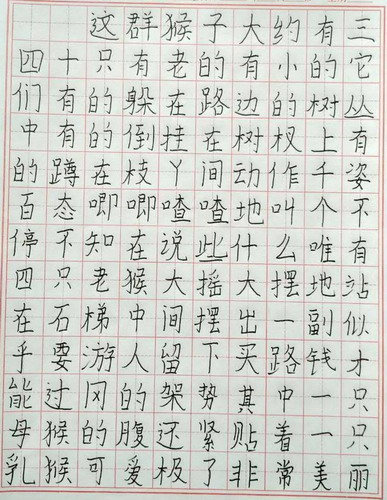 这群猴子大约有三
四十只有老的有小的它
们有的躲在路边的树丛
中有的倒挂在树杈上有
的蹲在枝丫间动作千姿
百态唧唧喳喳地叫个不
停不知在说些什么唯有
四只老猴大摇大摆地站
在石梯中间摆出一副似
乎要游人留下买路钱才
能过冈的架势其中一只
母猴的腹还紧贴着一只
乳猴可爱极了非常美丽